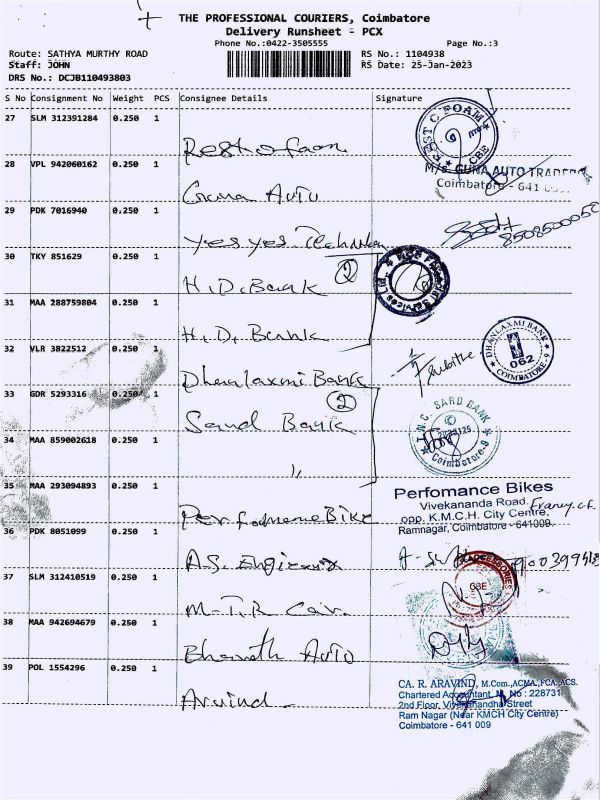 THE PROFESSIONAL COURIERS, Coimbatore
Delivery Runsheet - PCX
Phone No.:0422-3505555 Page No.:3
Route: SATHYA MURTHY ROAD RS No.: 1104938
Staff: JOHN RS Date: 25-Jan-2023
DRS No.: DCJB110493803
S No Consignment No Weight PCS Consignee Details Signature
27 SLM 312391284 0.250 1
Rest o foam
28 VPL 942060162 0.250 1
M/s. GUNA AUTO TRADERS
Coimbatore - 641
Guna Auto
29 PDK 7016940 0.250 1
yes yes
8508500050
30 TKY 851629 0.250 1
H.D. Bank 2
31 MAA 288759804 0.250 1
H.D. Bank
DHANLAXMI BANK
062
COIMBATORE-9
32 VLR 3822512 0.250 1
Dhanlaxmi Bank
33 GDR 5293316 0.250 1
2
Sard Bank
T.N.C. SARD BANK
Coimbatore-9
34 MAA 859002618 0.250 1
"
35 MAA 293094893 0.250 1
Perfomance Bikes
Vivekananda Road,
opp. K.M.C.H. City Centre,
Ramnagar, Coimbatore - 641009.
Performence Bike
36 PDK 8051099 0.250 1
A.S. Engineers
37 SLM 312410519 0.250 1
M.T.R Car.
38 MAA 942694679 0.250 1
Bharath Auto
39 POL 1554296 0.250 1
CA. R. ARAVIND, M.Com.,ACMA.,FCA.,ACS.
Chartered Accountant, M. No : 228731
2nd Floor, Vivekanandha Street
Ram Nagar (Near KMCH City Centre)
Coimbatore - 641 009
Arvind